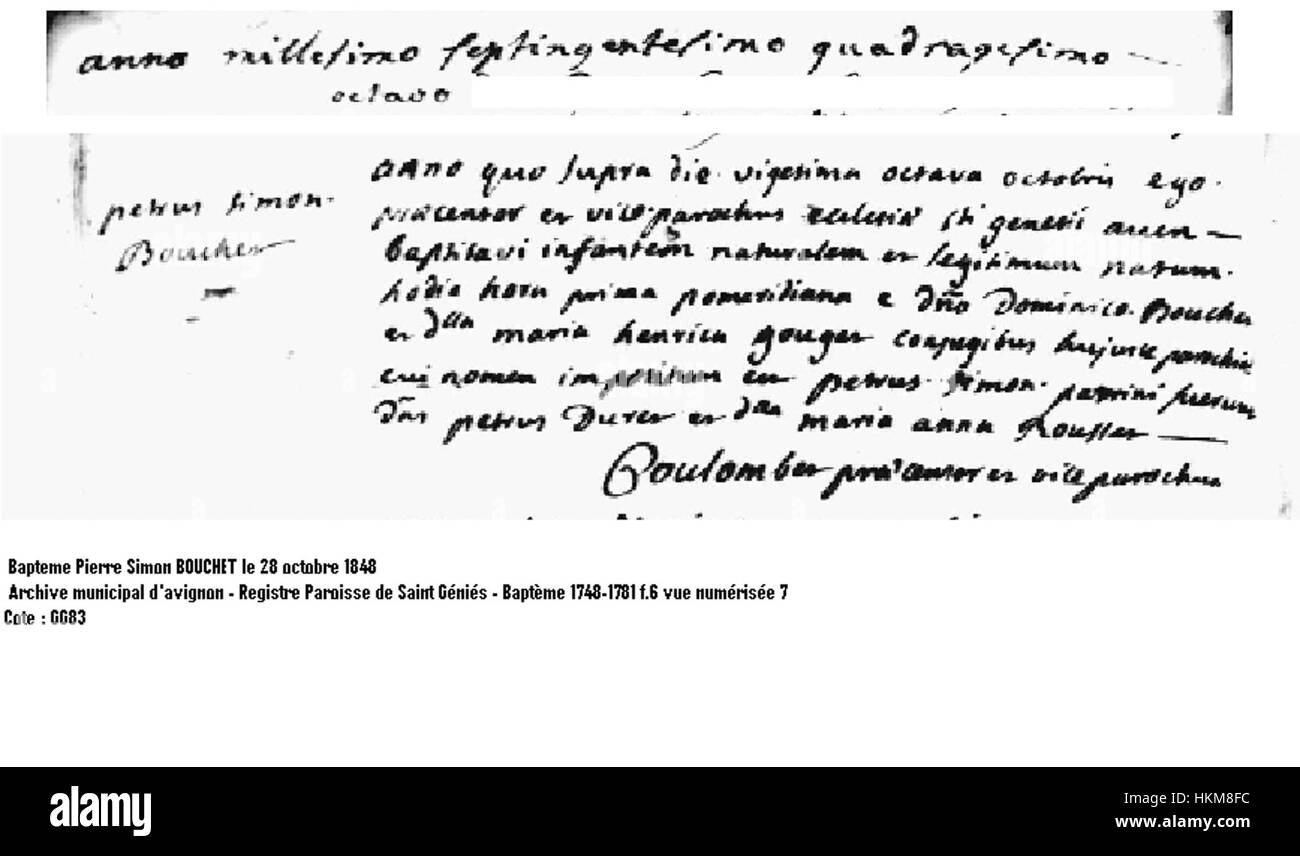 anno millesimo septingentesimo quadragesimo
octavo
petrus simon
Bouchet
anno quo supra die vigesima octava octobris ego
præcentor et vice parochus ecclesiæ sti genesii aven
baptisavi infantem naturalem et legitimum natum
hodie hora prima pomeridiana e dño Dominico Bouchet
et dlla maria henrica gouget conjugibus hujusce parochiæ
cui nomen impositum est petrus simon patrini fuerunt
dñs petrus Duret et dlla maria anna Rousset
Coulombet præcentor et vice parochus
Bapteme Pierre Simon BOUCHET le 28 octobre 1848
Archive municipal d'avignon - Registre Paroisse de Saint Géniés - Baptème 1748-1781 f.6 vue numérisée 7
Cote : GG83
alamy stock photo
HKM8FC
www.alamy.com